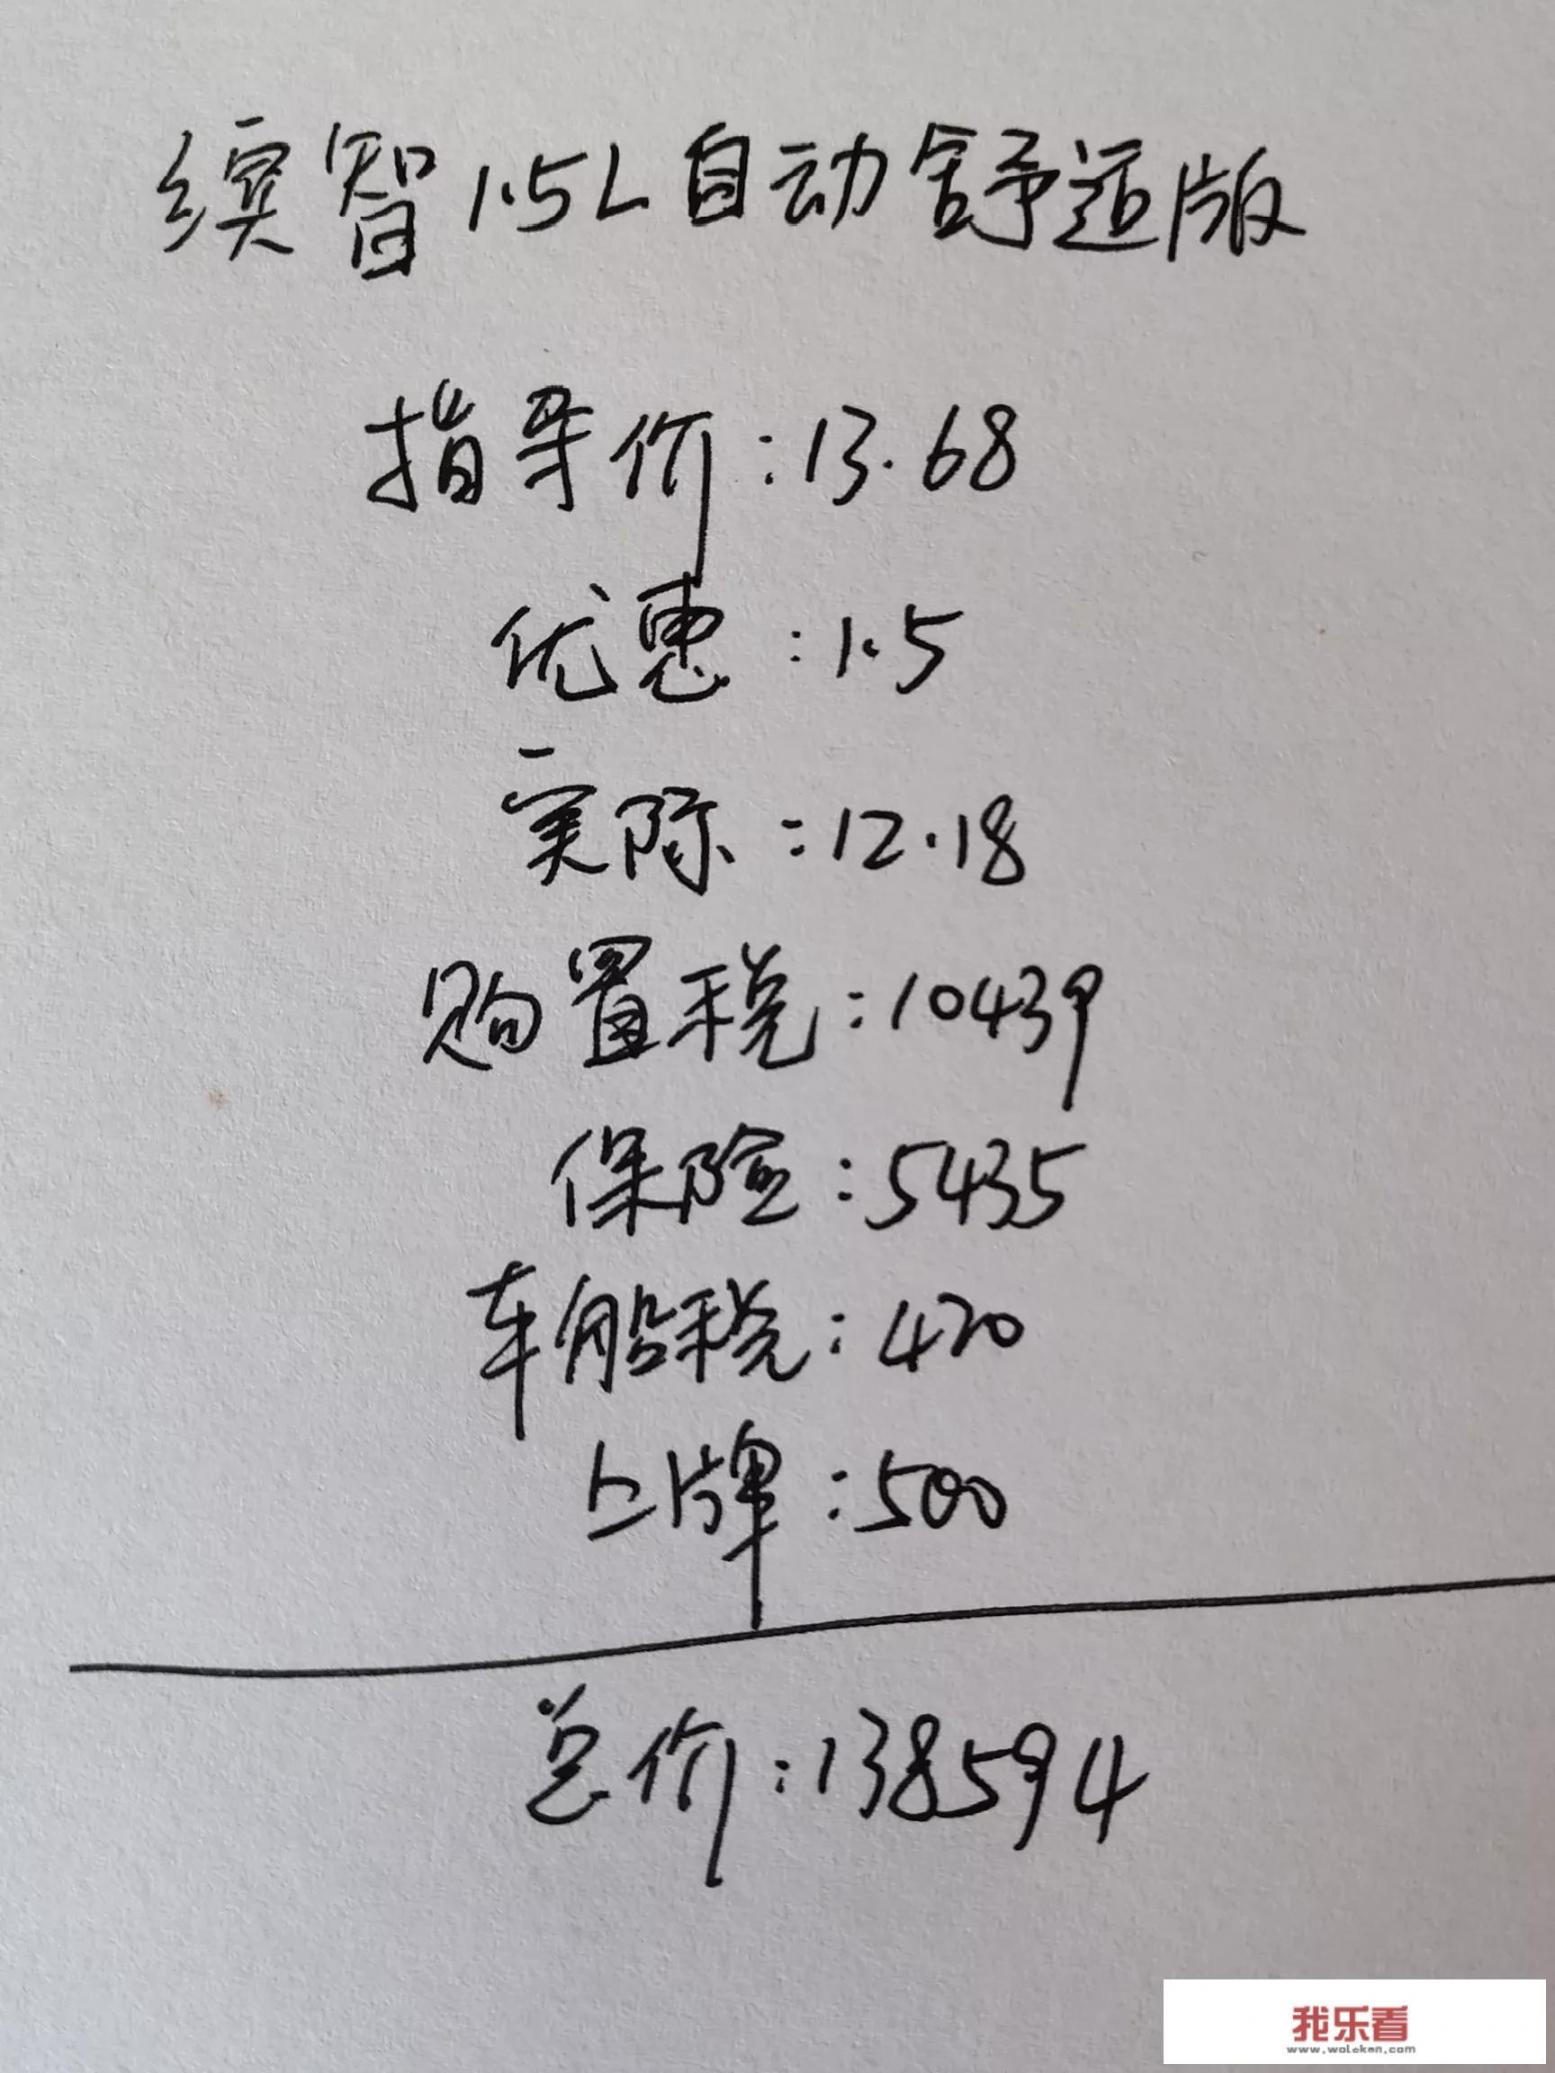 缤智1.5L自动舒适版
指导价:13.68
优惠:1.5
实际:12.18
购置税:10439
保险:5435
车船税:420
上牌:500
总价:138594
我乐看
www.woleken.com